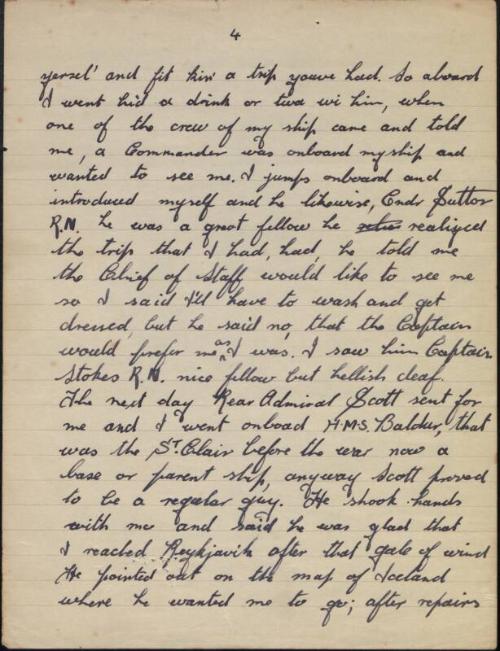 4
yersel' and fit kin' a trip youve had. So aboard
I went hid a drink or twa wi him, when
one of the crew of my ship came and told
me, a Commander was onboard my ship and
wanted to see me. I jumps onboard and
introduced myself and he likewise, Cmdr Sutton
R.N. he was a great fellow he realized
the trip that I had, had, he told me
the Chief of Staff would like to see me
so I said I'd have to wash and get
dressed, but he said no, that the Captain
would prefer me as I was. I saw him Captain
Stokes R.N. nice fellow but hellish deaf.
The next day Rear Admiral Scott sent for
me and I went onboad H.M.S. Baldur, that
was the St. Clair before the war now a
base or parent ship, anyway Scott proved
to be a regular guy. He shook hands
with me and said he was glad that
I reached Reykjavik after that gale of wind
He pointed out on the map of Iceland
where he wanted me to go; after repairs